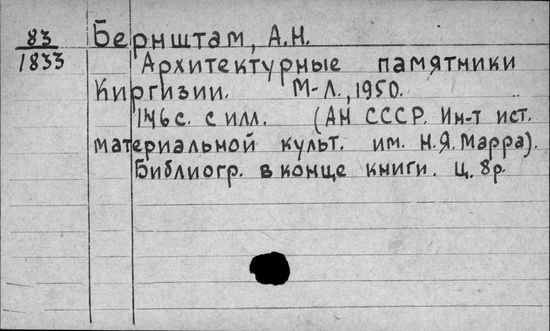 83 Бернштам, А.Н.
1833 Архитектурные памятники
Киргизии. М-Л., 1950.
146 с. с илл. (АН СССР. Ин-т ист.
материальной культ. им. Н.Я. Марра).
Библиогр. в конце книги. ц. 8 р.